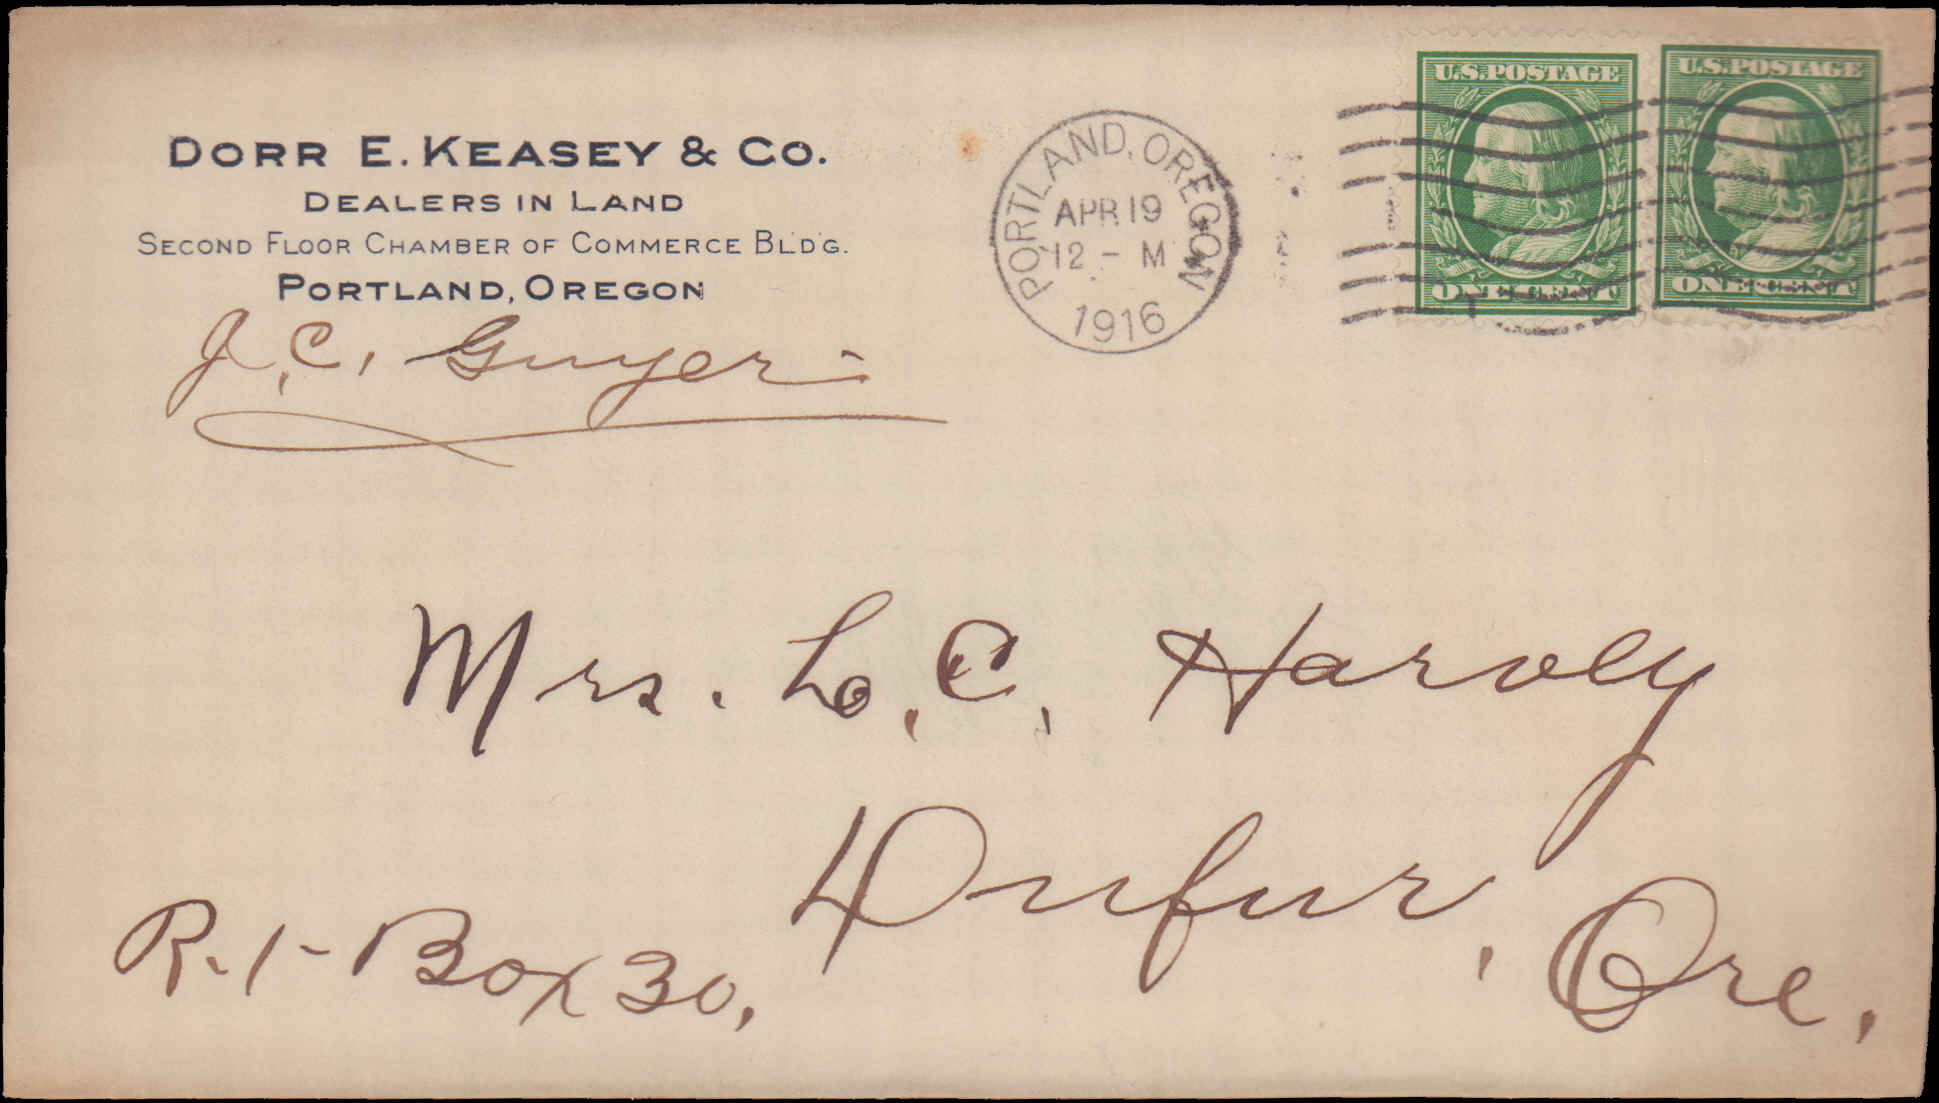 DORR E. KEASEY & CO.
DEALERS IN LAND
SECOND FLOOR CHAMBER OF COMMERCE BLDG.
PORTLAND, OREGON
J. C. Guyer
PORTLAND, OREGON
APR 19
12 - M
1916
U.S. POSTAGE
ONE CENT
U.S. POSTAGE
ONE CENT
Mrs. L. C. Harvey
Dufur, Ore.
R-1- Box 30,